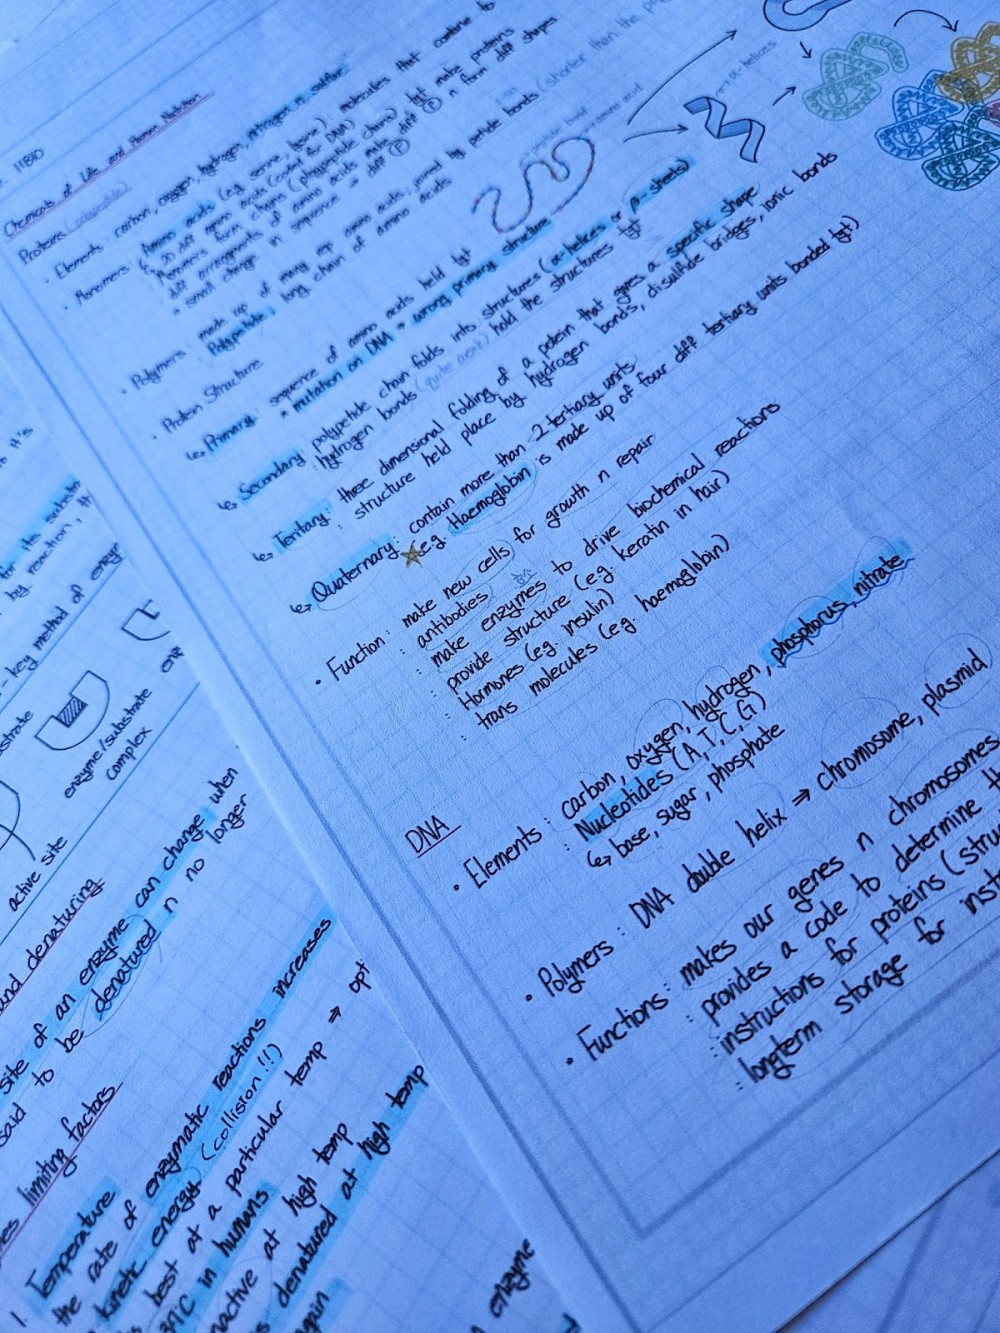 11B10
Chemicals of Life and Human Nutrition
Proteins
• Elements: carbon, oxygen, hydrogen, nitrogen n sulfur
• Monomers: Amino acids (e.g. serine,
↳ 20 diff amino acids (coded by DNA) molecules that combine to
Monomers form chains (polypeptide chains) tgt make proteins
diff arrangements of amino acids make diff Ⓟ n form diff shapes
* small change in sequence = diff Ⓟ
• Polymers: made up of many amino acids, joined by peptide bonds (shorter than the
Polypeptide: long chain of amino acids
• Protein Structure
↳ Primary: sequence of amino acids held tgt
* mutation on DNA = wrong primary structure
↳ Secondary: polypeptide chain folds into structures (α-helices or β-sheets)
: hydrogen bonds (quite weak) hold the structures tgt
↳ Teritary: three dimensional folding of a potein that gives a specific shape
: structure held place by hydrogen bonds, disulfide bridges, ionic bonds
↳ Quaternary: contain more than 2 tertiary units
e.g. Haemoglobin is made up of four diff tertiary units bonded tgt)
• Function: make new cells for growth n repair
: antibodies
: make enzymes to drive biochemical reactions
: provide structure (e.g. keratin in hair)
: Hormones (eg. insulin)
: trans molecules (eg. haemoglobin)
α helices
DNA
• Elements: carbon, oxygen, hydrogen, phosphorus, nitrate
: Nucleotides (A, T, C, G)
↳ base, sugar, phosphate
• Polymers: DNA double helix ⇒ chromosome, plasmid
• Functions: makes our genes n chromosomes
: provides a code to determine
: instructions for proteins
: longterm storage for
it's
for its
by reaction, it
-key method of
enzyme/substrate
complex
active site
and denaturing
site of an enzyme can change when
said to be denatured n no longer
limiting factors
1. Temperature
the rate of enzymatic reactions increases
kinetic energy (collision!!)
best at a particular temp ⇒ opt
in humans
at high temp
denatured at high temp
enzyme